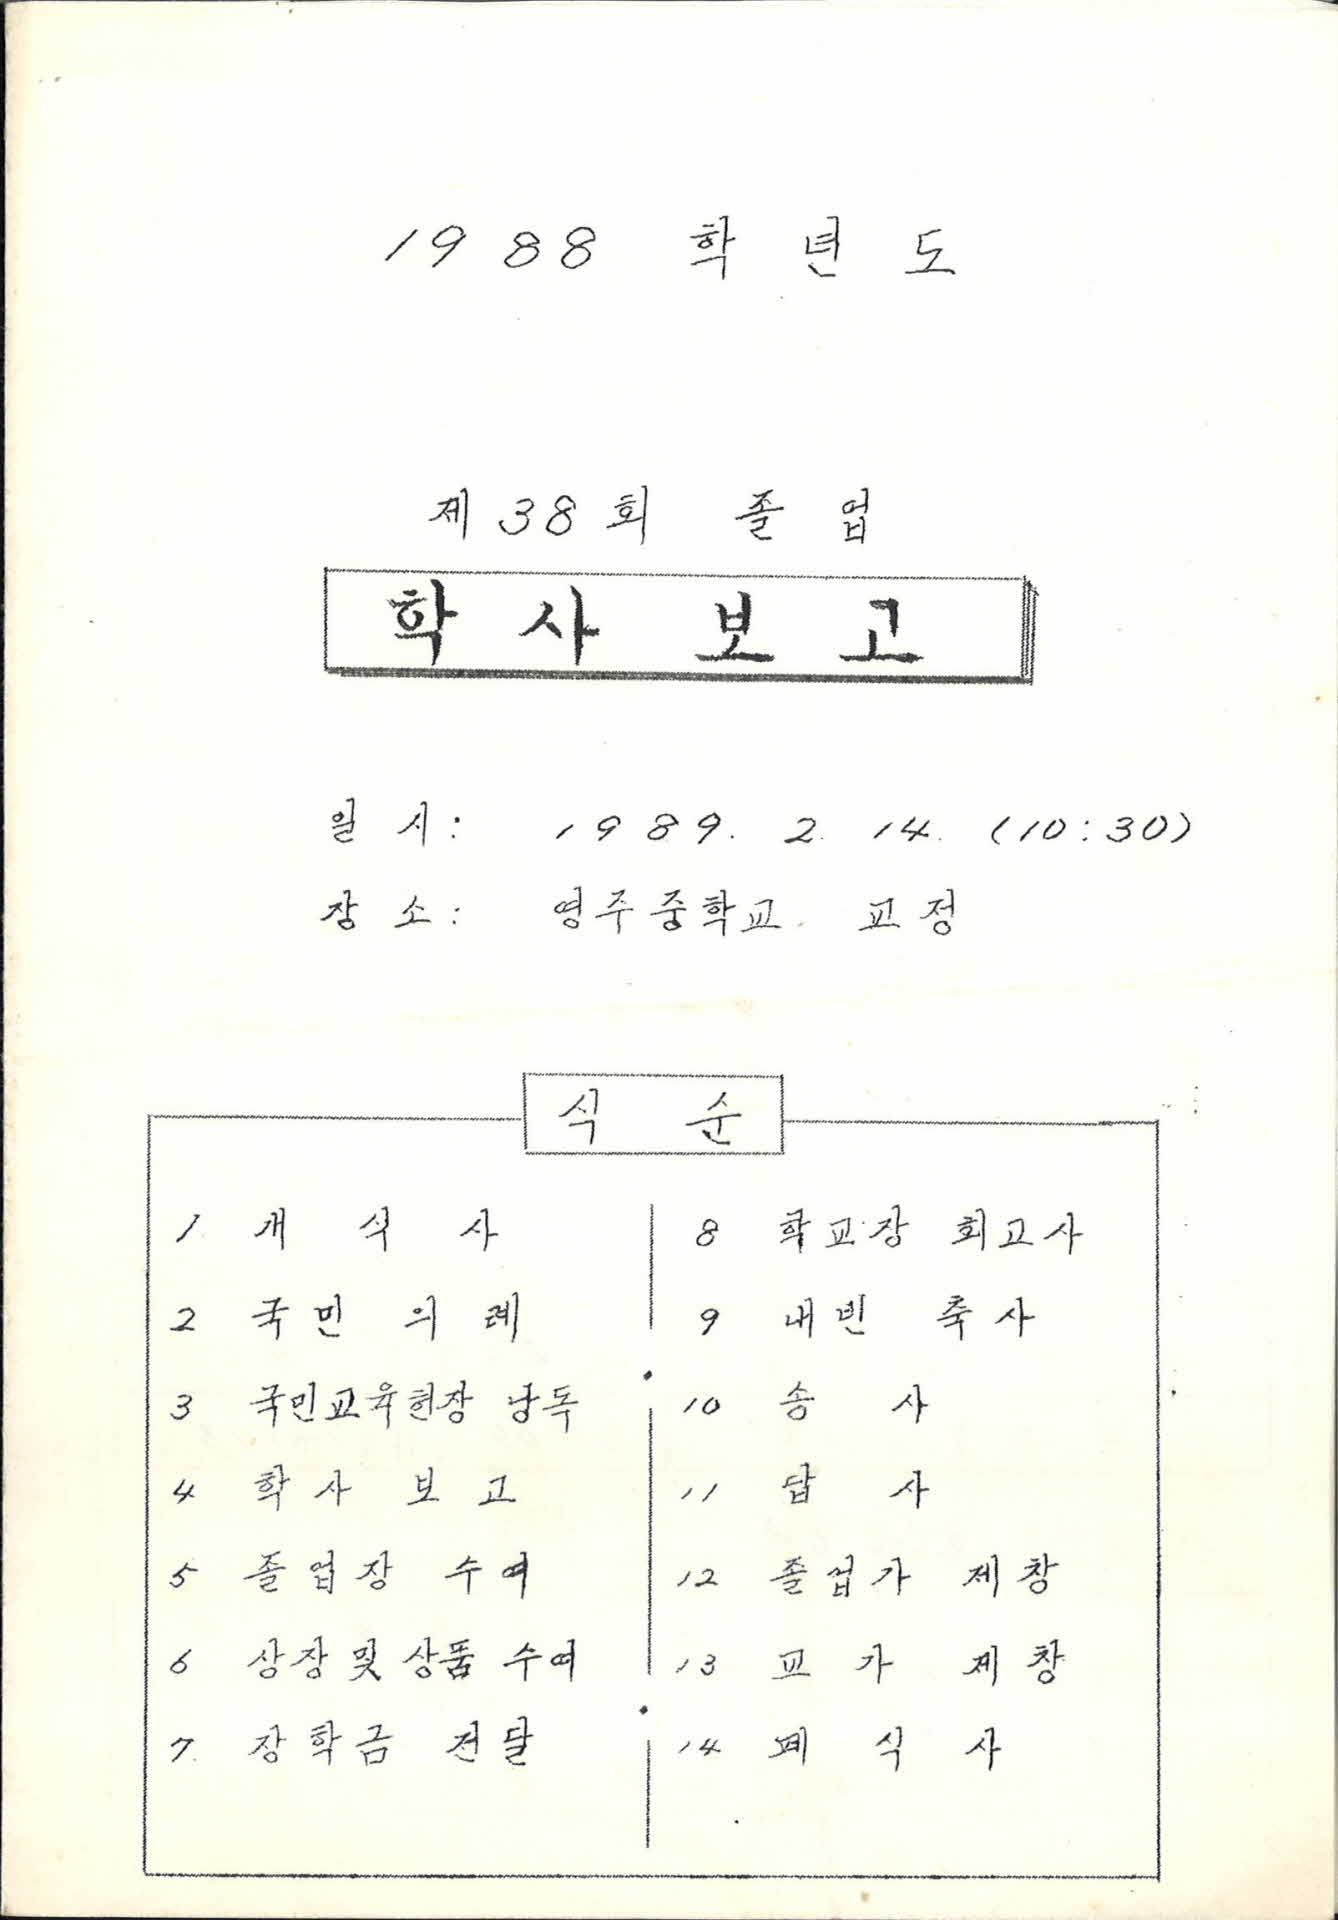 1988 학년도
제38회 졸업
학사 보고
일시: 1989. 2. 14. (10:30)
장소: 영주중학교 교정
식순
1 개식사
2 국민 의례
3 국민교육헌장 낭독
4 학사 보고
5 졸업장 수여
6 상장 및 상품 수여
7. 장학금 전달
8 학교장 회고사
9 내빈 축사
10 송사
11 답사
12 졸업가 제창
13 교가 제창
14 폐식사